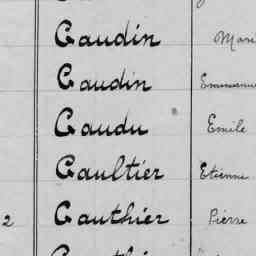 Gaudin Mari
Gaudin Emmanu
Gaudu Emile
Gaultier Etienne
2 Gauthier Pierre